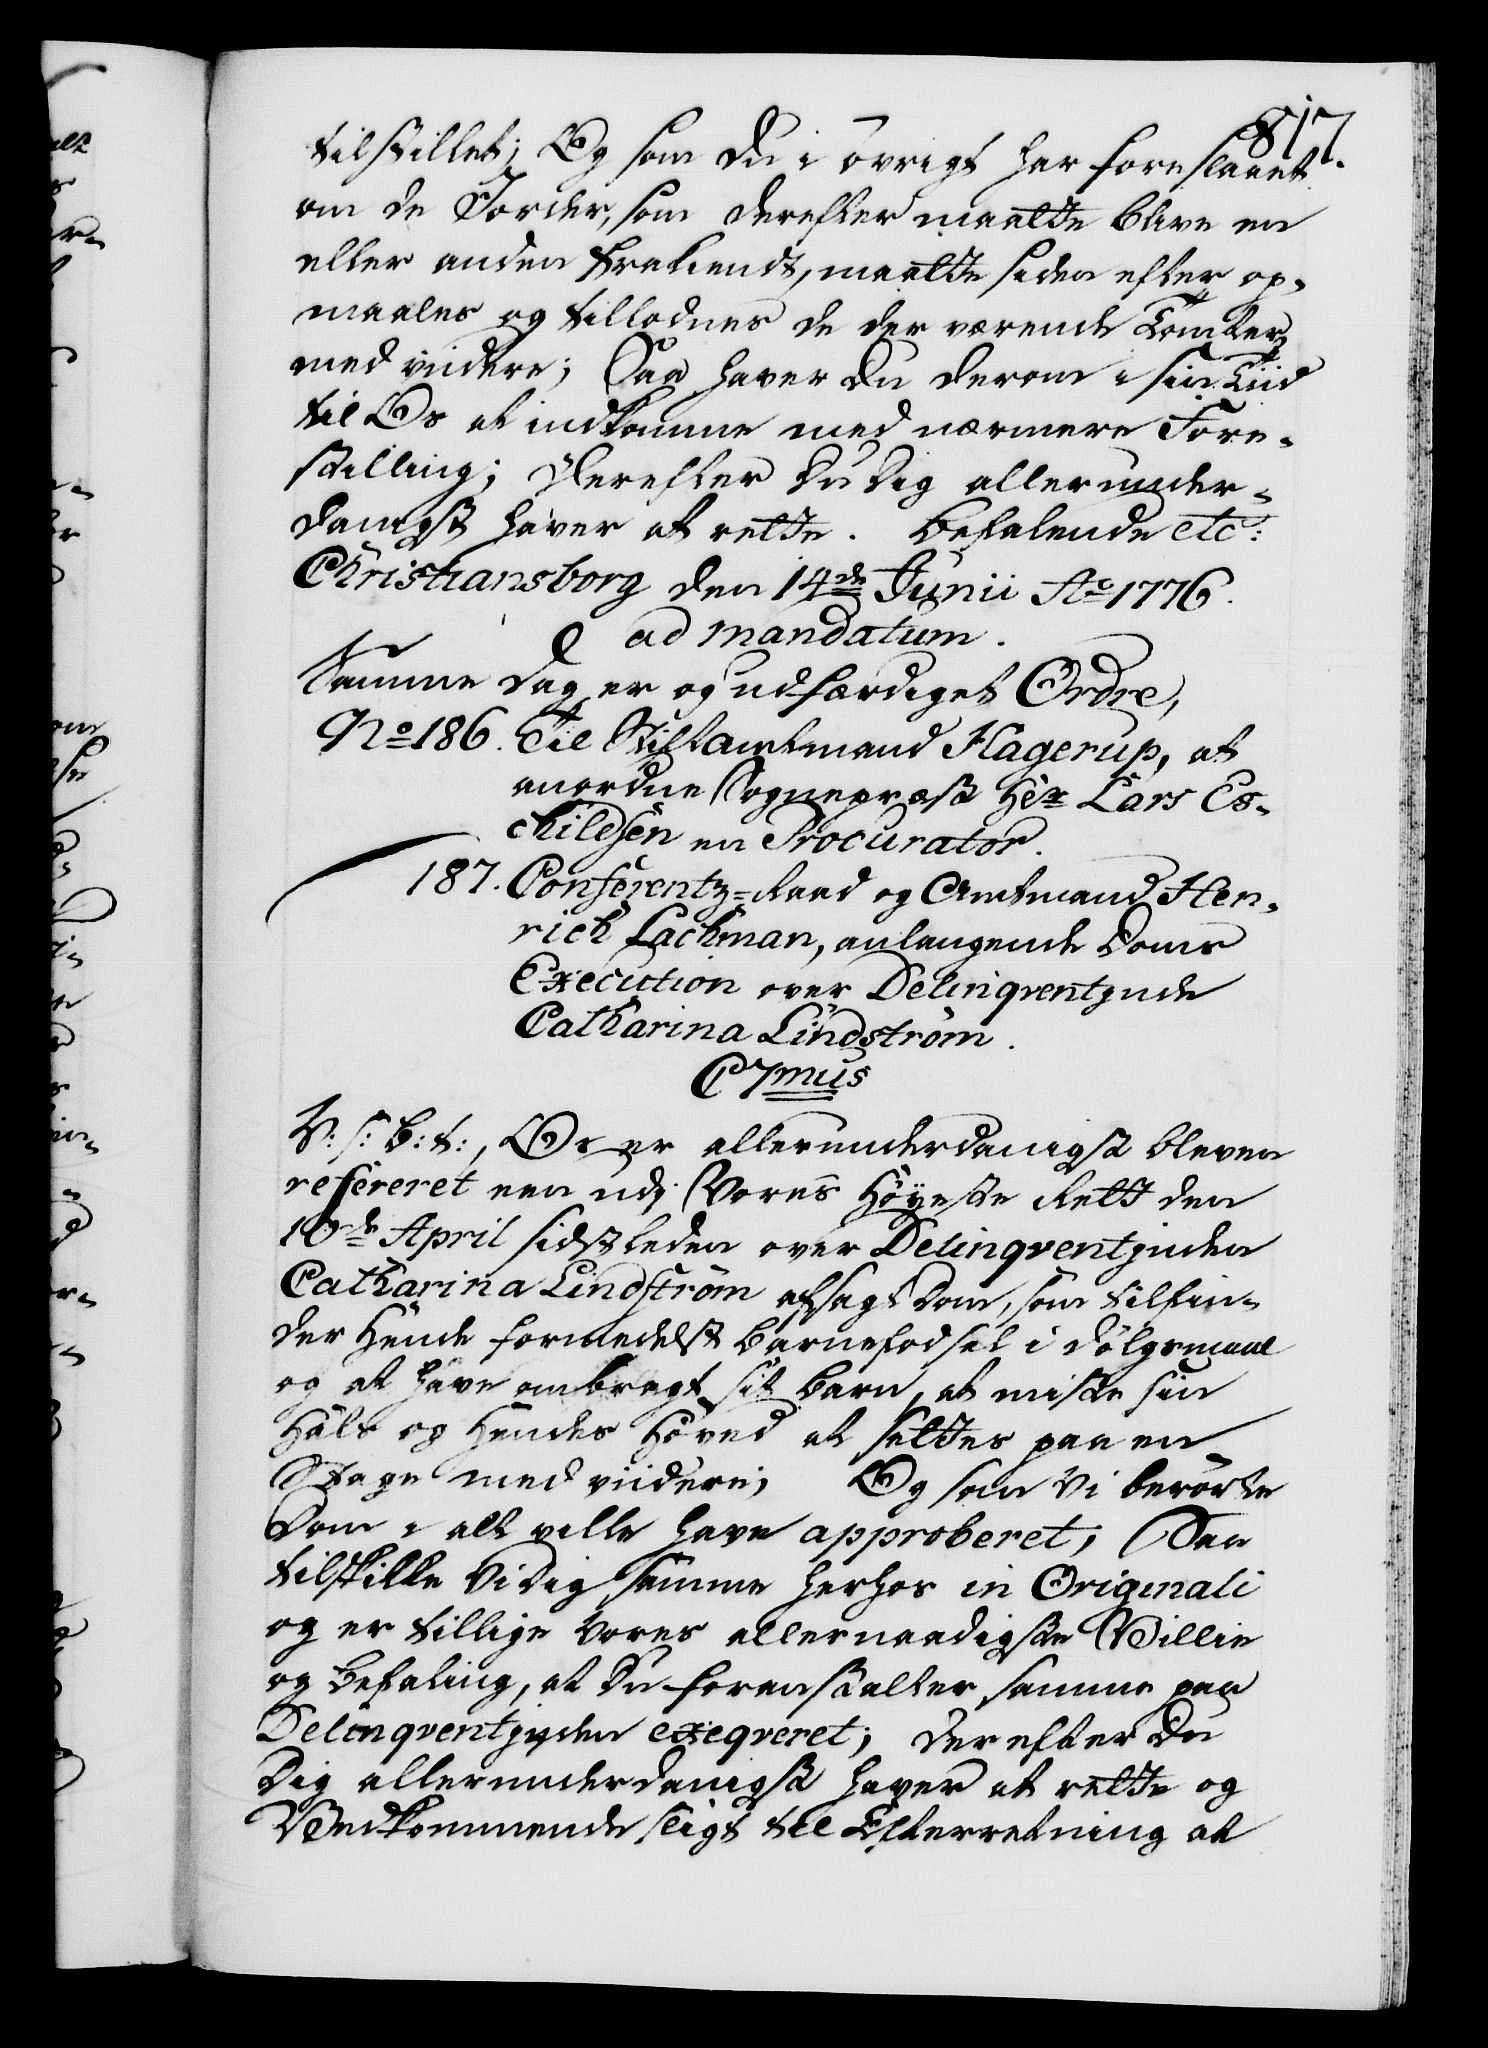 817.
tilstillet; Og som du i øvrigt har foreslaaet
om de Jorder, som derefter maatte blive en
eller anden frakiendt, maatte siden efter op-
maales og tillodnes de der værende Tomter
med viidere; Saa haver du derom i sin Tiid
til Os at indkomme med nærmere Fore-
stilling; Derefter du dig allerunder-
danigst haver at rette. Befalende etc:
Christiansborg den 14de Junii Ao 1776.
ad mandatum.
Samme Dag er og udfærdiget Ordre,
No 186. Til Stiftamtmand Hagerup, at
anordne Sognepræst Hr Lars Es-
childsen en Procurator.
187. Conferentz-Raad og Amtmand Hen-
rich Lachman, anlangende Doms
Execution over Delinqventinde
Catharina Lindstrøm.
C7mus
V: s: b: t:, Os er allerunderdanigst bleven
refereret een udj Vores Höyeste Rett den
10de April sidstleden over Delinqventinden
Catharina Lindstrøm afsagt Dom, som tilfin-
der Hende formedelst Barnefødsel i dølgsmaal
og at have ombragt sit Barn, at miste sin
Hals og Hendes Hoved at settes paa en
Stage med viidere; Og som Vi berørte
Dom i alt ville have approberet; Saa
tilskikke Vi dig samme herhos in Originali
og er tillige Vores allernaadigste Villie
og Befaling, at du foranstalter samme paa
Delinqventinden exeqveret; Derefter du
dig allerunderdanigst haver at rette og
Vedkommende sligt til Efterretning at